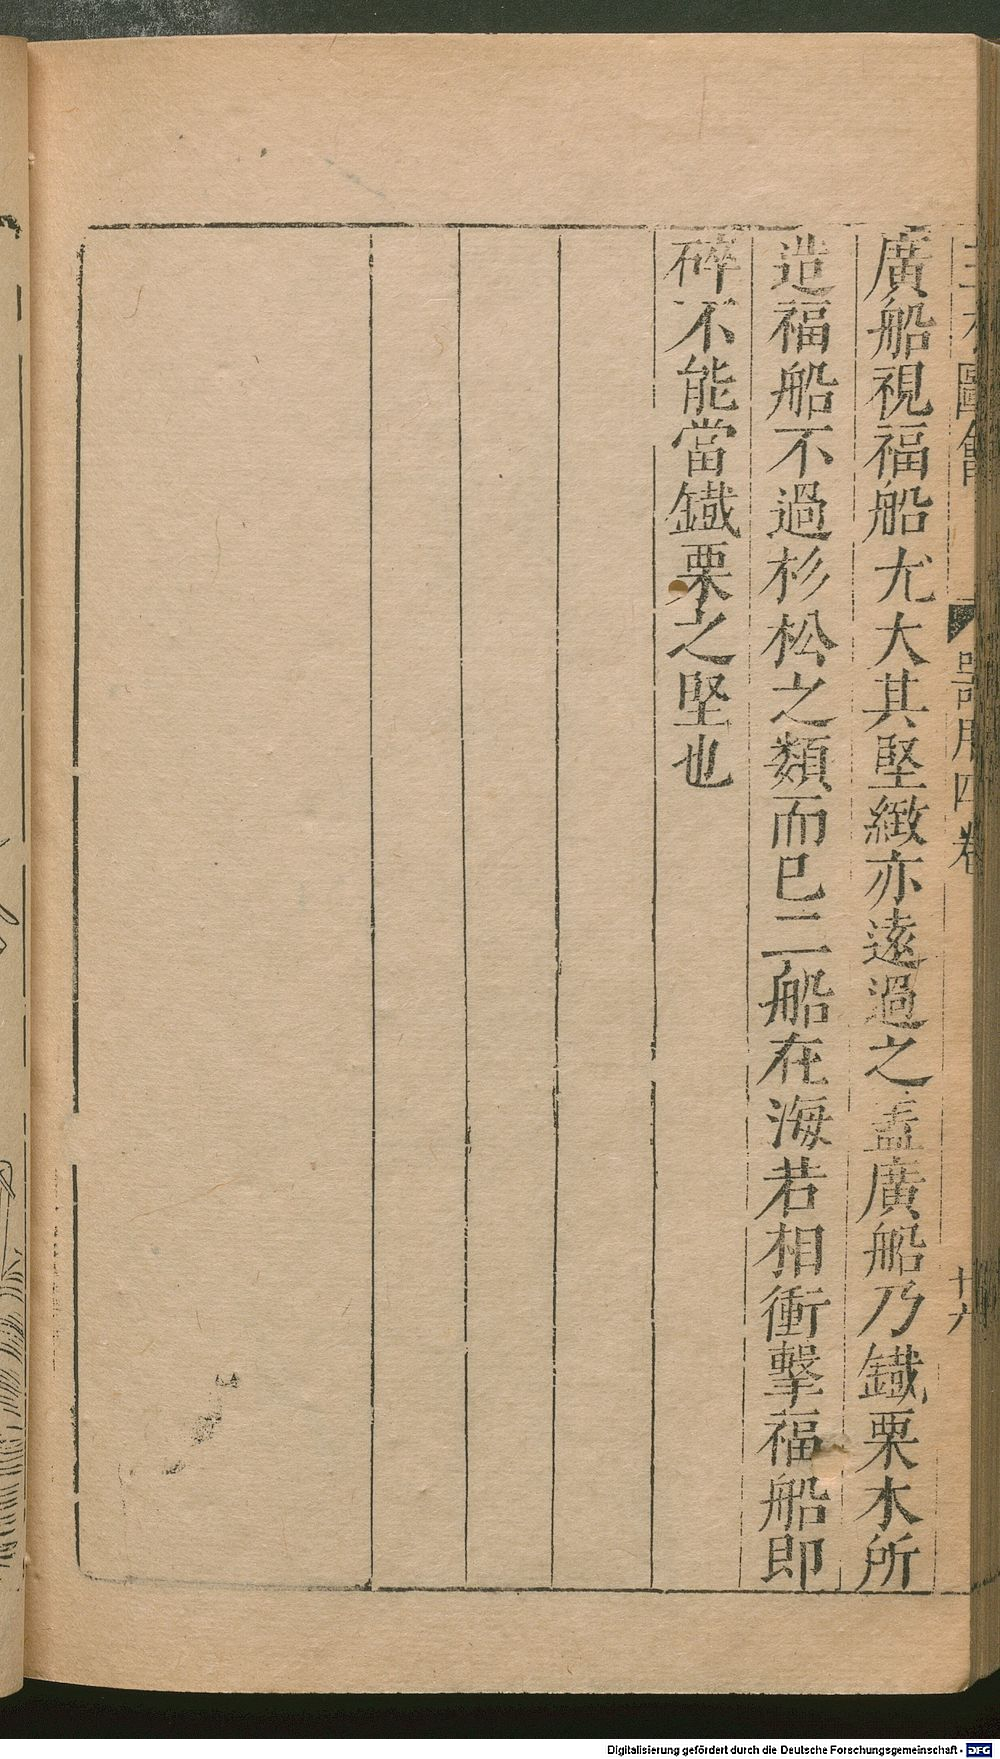 三才圖會
器用四卷
十六
廣船視福船尤大其堅緻亦遠過之盖廣船乃鐵栗木所
造福船不過杉松之類而巳二船在海若相衝擊福船即
碎不能當鐵栗之堅也
Digitalisierung gefördert durch die Deutsche Forschungsgemeinschaft - DFG